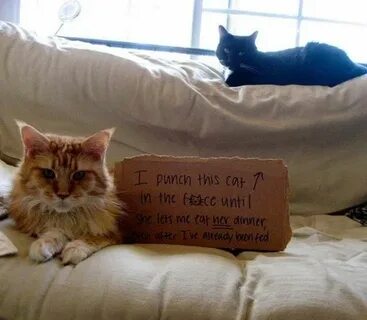 I punch this cat ↑
in the face until
she lets me eat her dinner,
even after I've already been fed